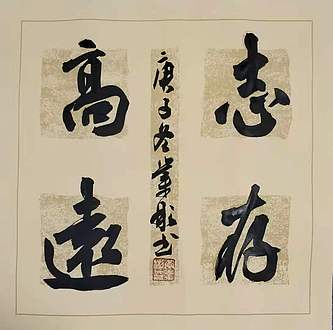 志存
高遠
庚子冬業彪書